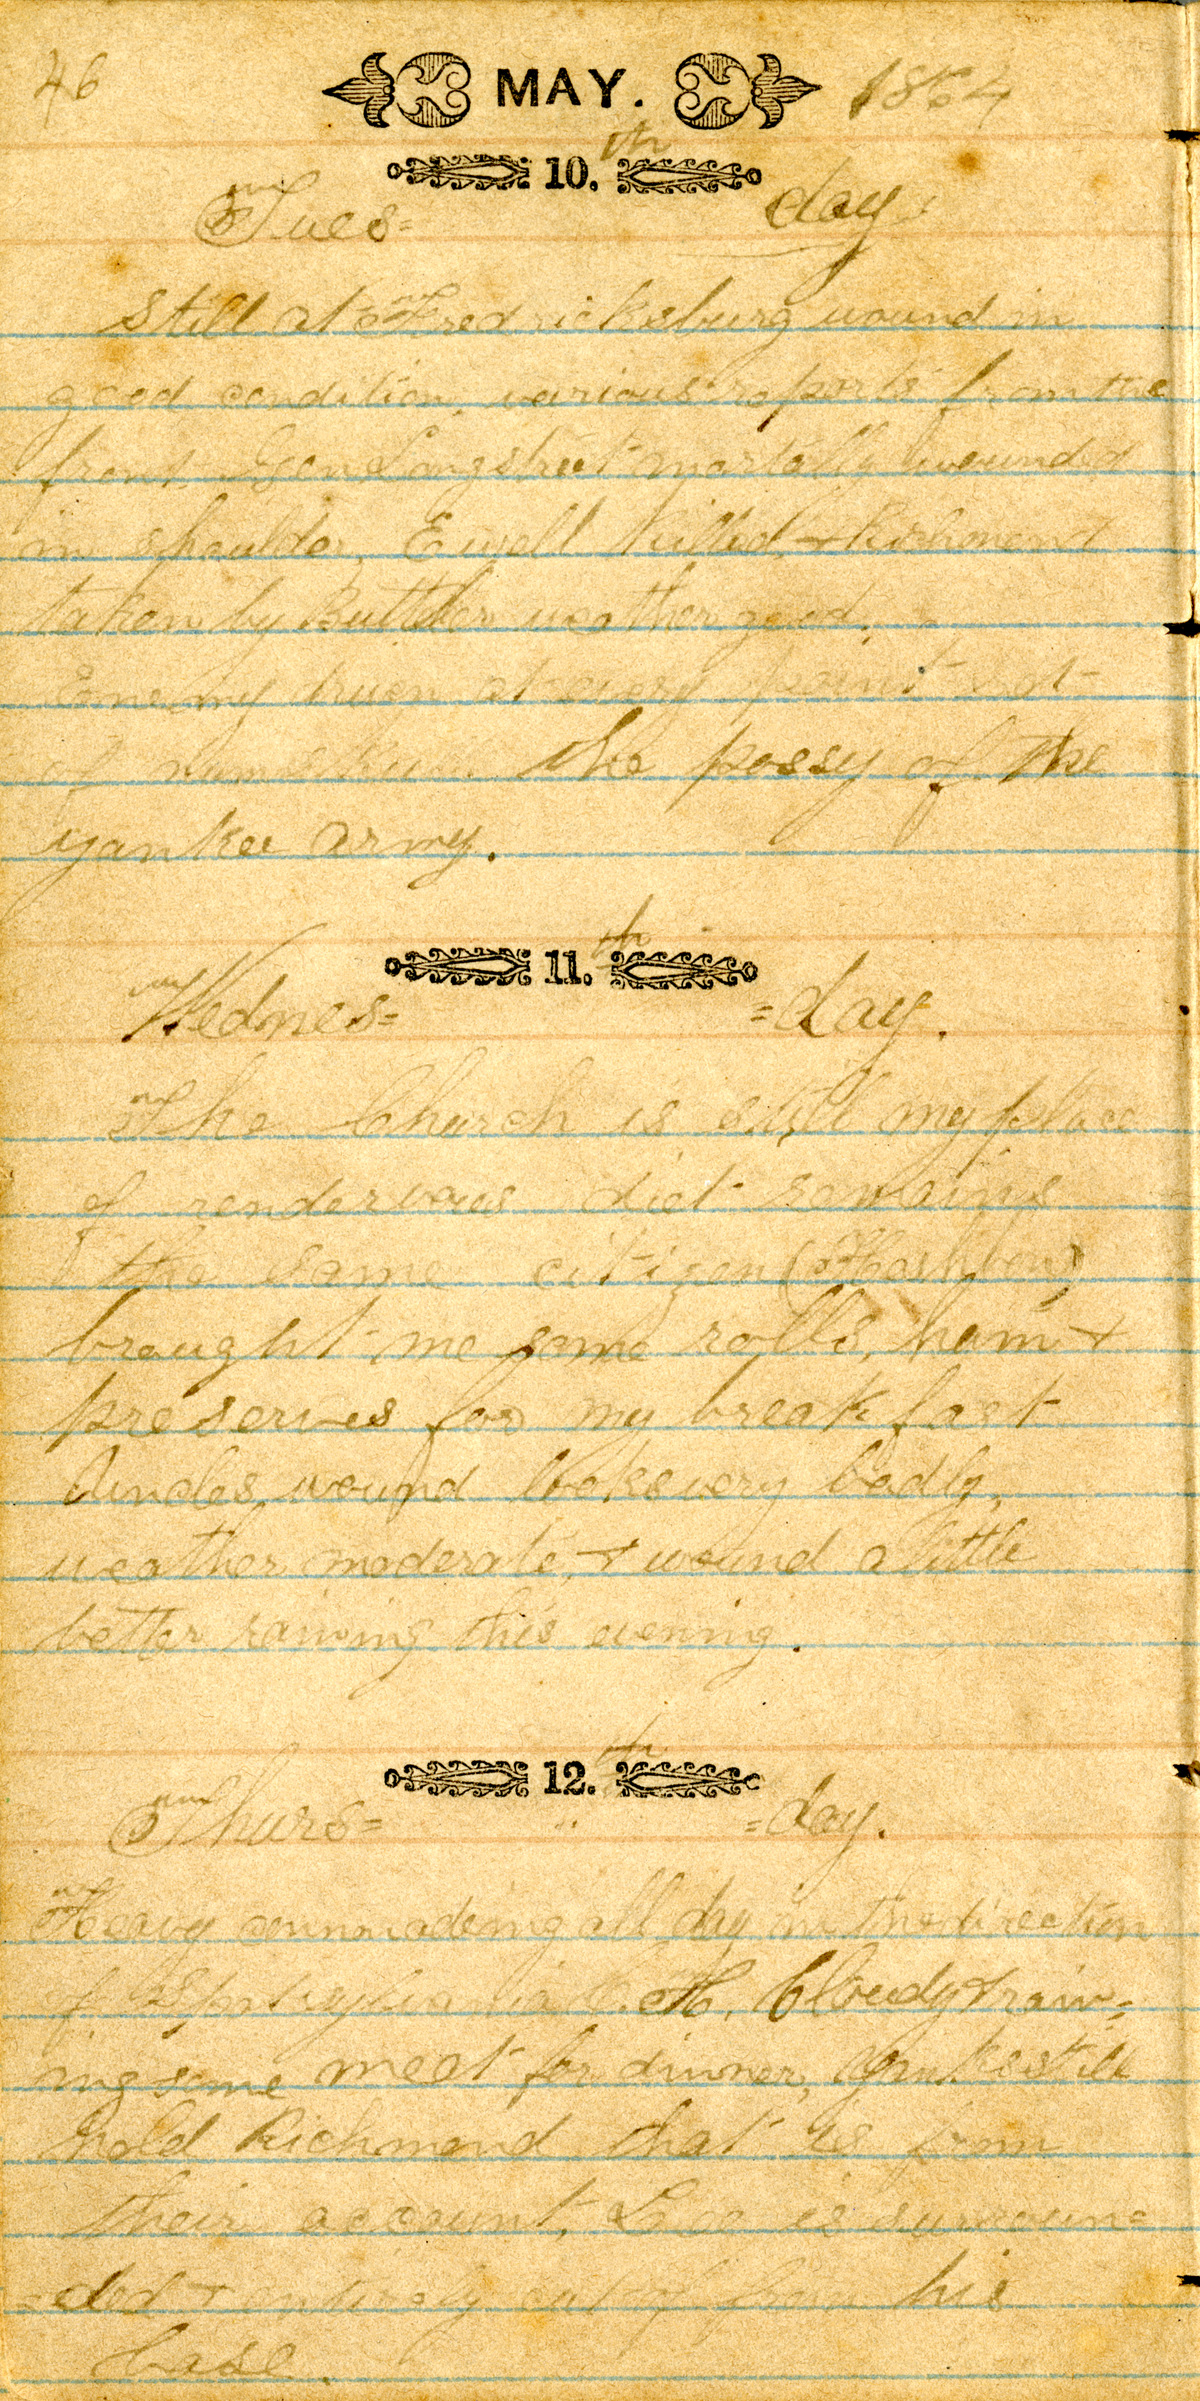 46 MAY. 1864
10.th
Tues= day.
Still at Fredricksburg wound in
good condition, various reports from the
front. Gen Longstreet mortally wounded
in shoulder, Ewell killed, + Richmond
taken by Buttler weather good.
Enemy driven at every point
of the possy of the
yankee army.
11.th
Wednes= =day.
The Church is still my place
of rendezvous diet remains
the same citizen
brought me some rolls, ham +
preserves for my breakfast
wound looks very badly,
weather moderate, + wound a little
better raining this evening.
12.th
Thurs= =day.
Heavy cannonadeing all day in the direction
of C. H. Cloudy + rain=
ing some meat for dinner, Yanks still
hold Richmond that is from
their account, Lee is surroun=
=ded + entirely cut off from his
base.